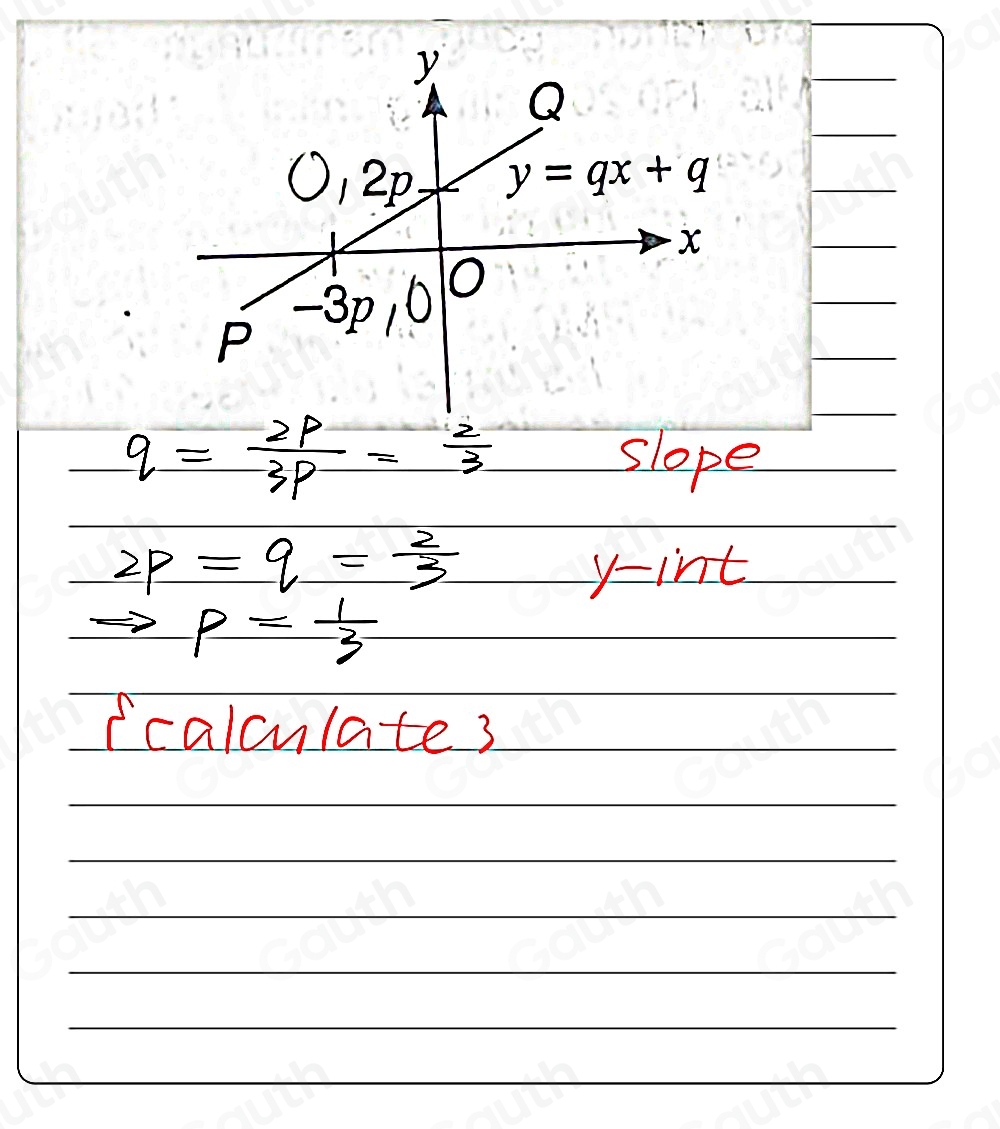 y
Q
0, 2p
y = qx + q
x
O
-3p, 0
P
q = 2p/3p = 2/3 slope
2p = q = 2/3 y-int
⇒ p = 1/3
{calculate}
Gauth